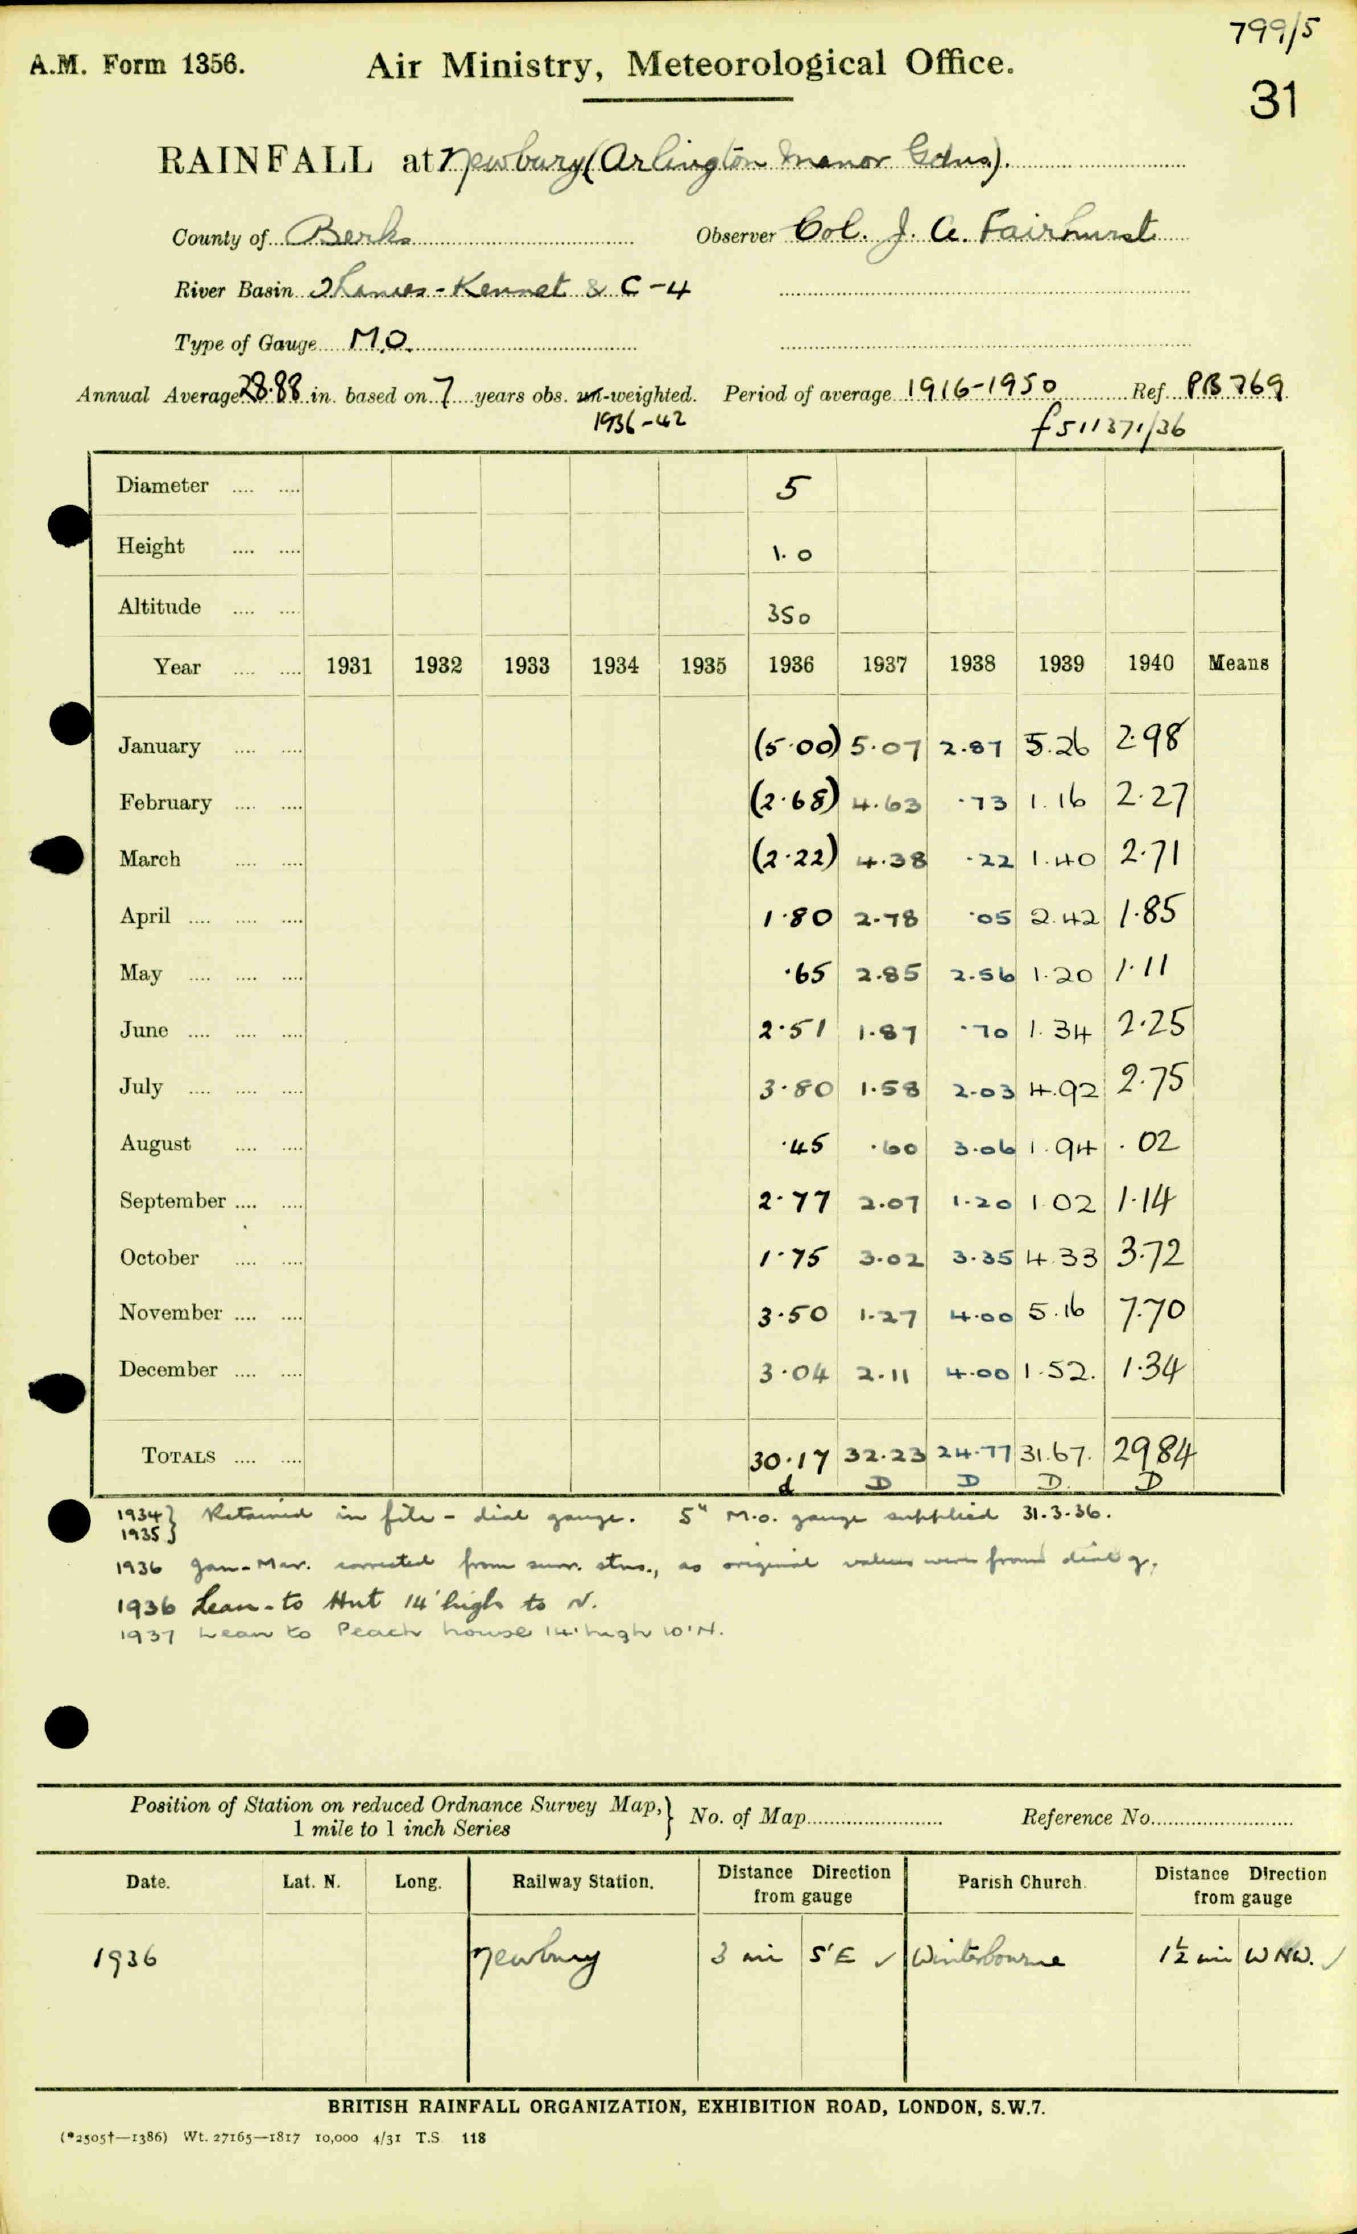 799/5
A.M. Form 1356. Air Ministry, Meteorological Office.
31
RAINFALL at Newbury (Arlington Manor Gdns).
County of Berks Observer Col. J. A. Fairhurst
River Basin Thames - Kennet & C-4
Type of Gauge M.O.
Annual Average 28.88 in. based on 7 years obs. un-weighted. Period of average 1916-1950 Ref. PB 769
1936-42 f511371/36
Diameter .... .... 5
Height .... .... 1.0
Altitude .... .... 350
Year .... .... 1931 1932 1933 1934 1935 1936 1937 1938 1939 1940 Means
January .... .... (5.00) 5.07 2.87 5.26 2.98
February .... .... (2.68) 4.63 .73 1.16 2.27
March .... .... (2.22) 4.38 .22 1.40 2.71
April .... .... .... 1.80 2.78 .05 2.42 1.85
May .... .... .... .65 2.85 2.56 1.20 1.11
June .... .... .... 2.51 1.87 .70 1.34 2.25
July .... .... .... 3.80 1.58 2.03 4.92 2.75
August .... .... .45 .60 3.06 1.94 .02
September .... .... 2.77 2.07 1.20 1.02 1.14
October .... .... 1.75 3.02 3.35 4.33 3.72
November .... .... 3.50 1.27 4.00 5.16 7.70
December .... .... 3.04 2.11 4.00 1.52. 1.34
TOTALS .... .... 30.17 32.23 24.77 31.67. 29 84
d D D D. D
1934 } Retained in file - dial gauge. 5" M.O. gauge supplied 31.3.36.
1935 }
1936 Jan-Mar. corrected from surr. stns., as original values were from dial g.
1936 Lean-to Hut 14' high to N.
1937 Lean to Peach house 14' high 10' N.
Position of Station on reduced Ordnance Survey Map, } No. of Map Reference No.
1 mile to 1 inch Series
Date. Lat. N. Long. Railway Station. Distance Direction from gauge Parish Church. Distance Direction from gauge
1936 Newbury 3 mi S'E ✓ Winterbourne 1½ mi WNW. ✓
BRITISH RAINFALL ORGANIZATION, EXHIBITION ROAD, LONDON, S.W.7.
(*2505†—1386) Wt. 27165—1817 10,000 4/31 T.S. 118